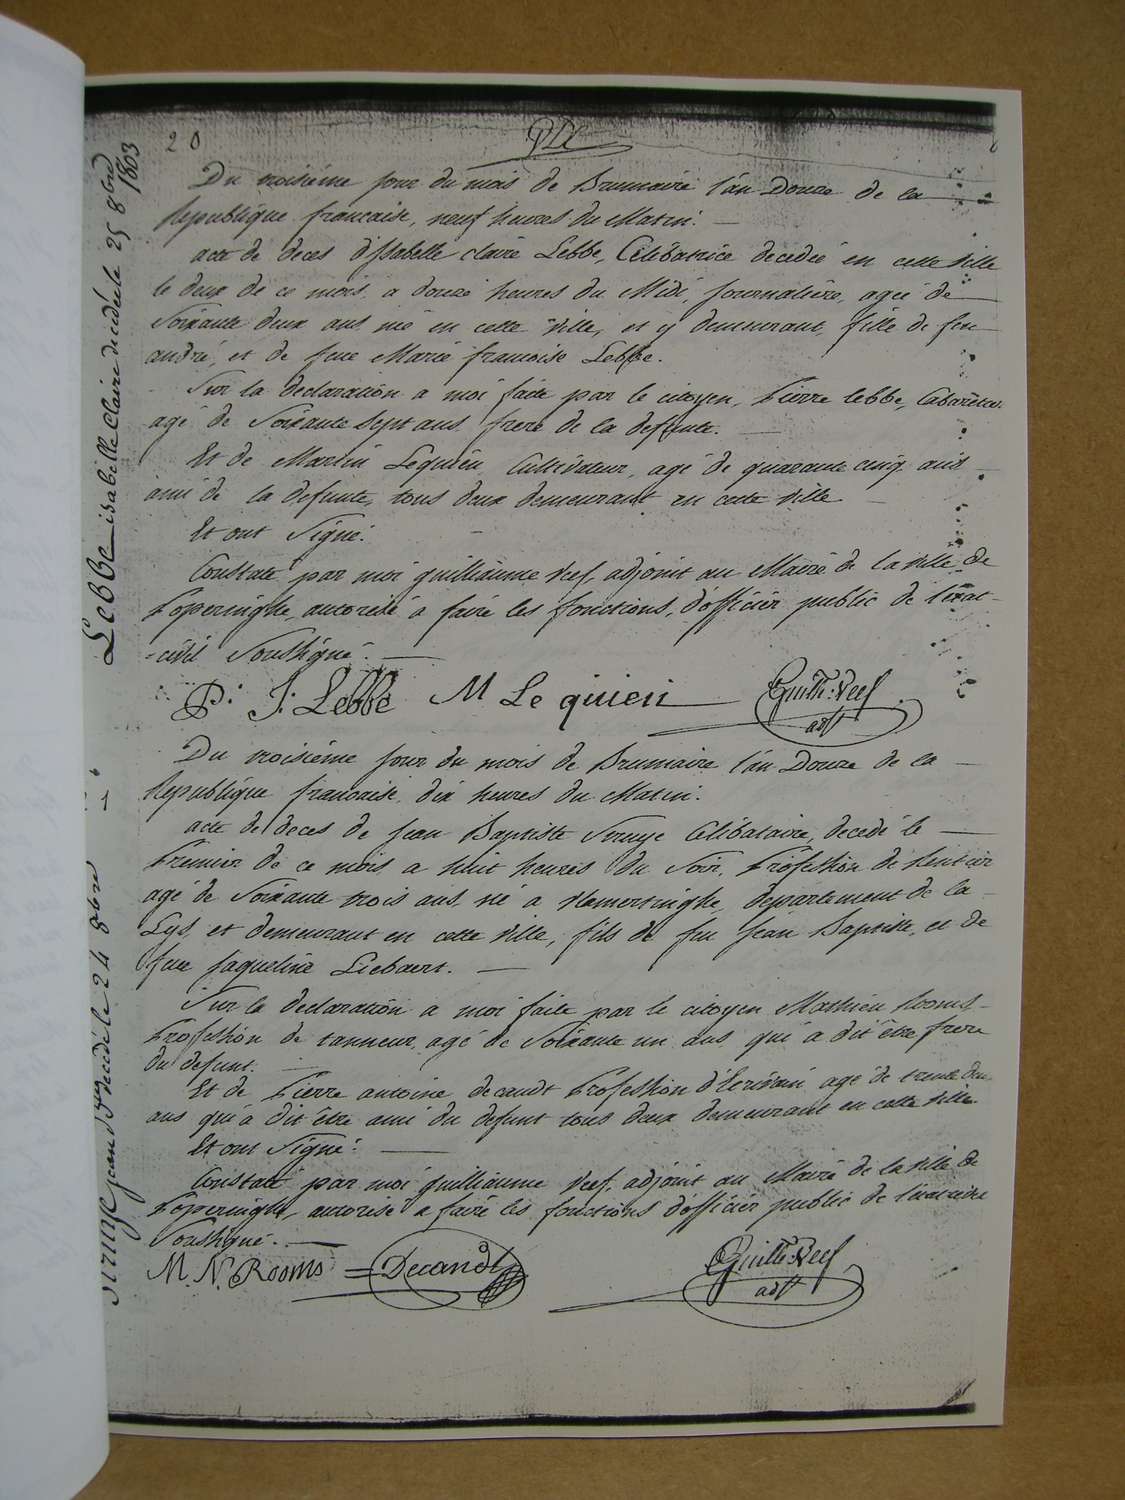 20
Du troisiéme jour du mois de Brumaire l'an Douze de la
Republique francaise, neuf heures du Matin.
acte de deces d'Isabelle claire Lebbe, Célibatrice decedée en cette Ville
le deux de ce mois, a douze heures du Midi, Journaliére, ageé de
Soixante deux ans né en cette Ville, et y demeurant, fille de feu
andré, et de feue Marie francoise Lebbe.
Sur la declaration a moi faite par le citoyen, Pierre Lebbe, Cabaretier
agé de Soixante Sept ans frere de la defunte.
Et de Martin Lequien Cultivateur, agé de quarante cinq ans
ami de la defunte, tous deux demeurant en cette Ville
Et ont Signé.
Constaté par moi guilliaume Veef, adjoint au Maire de la ville de
Poperinghe, autorisé a faire les fonctions, d'officier public de l'état-
=civil Soussigné.
P: J: Lebbe M Le quien Guill: Veef
adjt
Du troisiéme jour du mois de Brumaire l'an Douze de la
Republique francaise, dix heures du Matin.
acte de deces de jean Baptiste Struye Célibataire, decedé le
Premier de ce mois a huit heures du Soir, Profession de Rentier
agé de Soixante trois ans né a Vlamertinghe, departement de la
Lys, et demeurant en cette ville, fils de feu Jean Baptiste, et de
feue Jaqueline Liebaert.
Sur la declaration a moi faite par le citoyen Mathieu Rooms
Profession de tanneur, agé de Soixante un ans qui a dit être frere
du defunt.
Et de Pierre antoine decandt Profession d'Ecrivain agé de trente deux
ans qui a dit être ami du defunt tous deux demeurant en cette ville.
Et ont Signé.
Constaté par moi guilliaume Veef, adjoint au Maire de la ville de
Poperinghe, autorisé a faire les fonctions d'officier public de l'état civil
Soussigné.
M. N. Rooms = Decandt Guill: Veef
adjt
Lebbe isabelle Claire decedée le 25 8bre
1803
Struye jean Bte decedé le 24 8bre